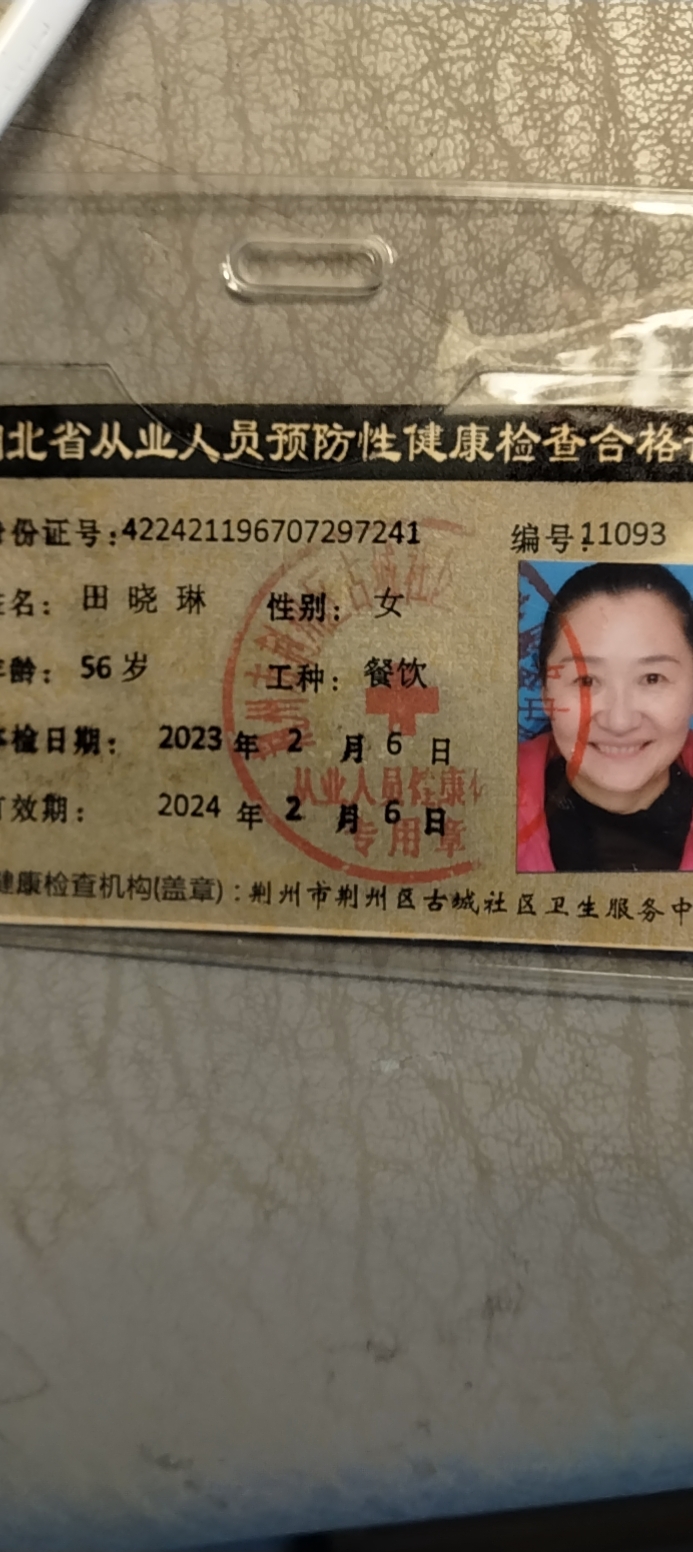 北省从业人员预防性健康检查合格证
身份证号:422421196707297241 编号:11093
姓名: 田晓琳 性别: 女
年龄: 56岁 工种: 餐饮
体检日期: 2023年2月6日
有效期: 2024年2月6日
健康检查机构(盖章):荆州市荆州区古城社区卫生服务中
荆州区古城社区
从业人员健康体
专用章